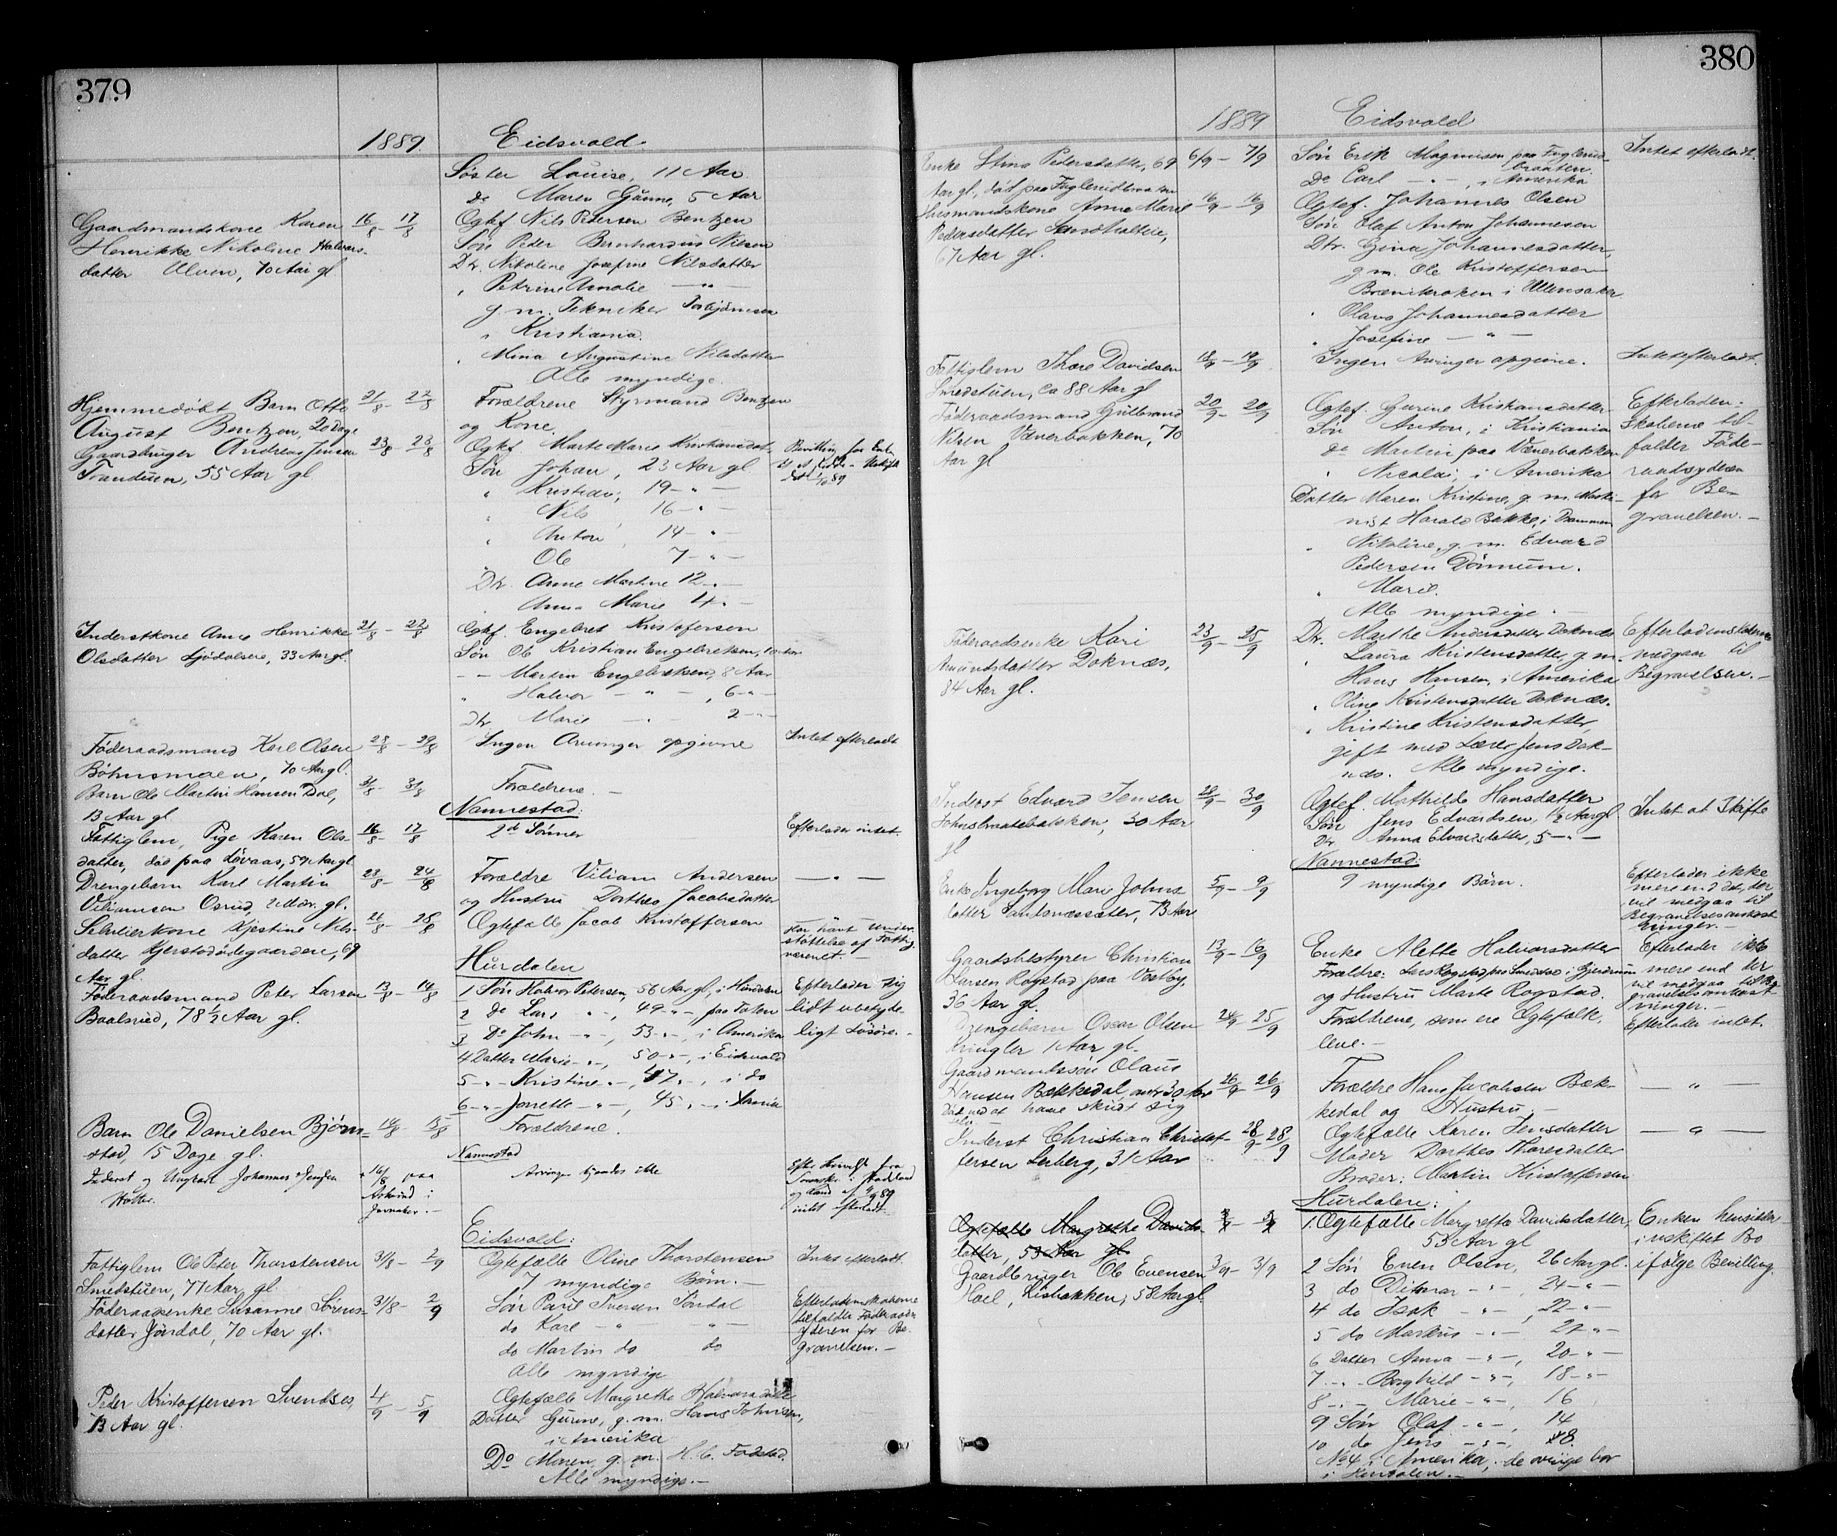 379
1889 Eidsvold
Søster Louise, 11 Aar
Do Maren Gunne, 5 Aar
Gaardmandskone Karen 16/8 - 17/8 Ægtef. Nils Petersen Bentzen
Henrikke Nikoline Halvors- Søn Peder Bernhardus Nilsen
datter Ulven, 70 Aar gl Dtr. Nikoline Josefine Nilsdatter
" Petrine Amalie — " —
g. m. Tekniker
i Kristiania.
" Mina Augustine Nilsdatter
Alle myndige.
Hjemmedøbt Barn Otto 21/8 - 22/8 Forældrene Styrmand Bentzen
August Bentzen, 20 Dage og Kone.
Gaardbruger Andreas Jensen 23/8 - 28/8 Ægtef. Marte Marie Kristiansdat.
Trandum, 55 Aar gl Søn Johan, 23 Aar gl
" Kristian, 19 - " -
" Nils 16 - " -
" Anton, 14 - " -
" Ole 7 - " -
Dtr. Anne Martine 12 - " -
" Anna Marie 4 " -
Inderstkone Anne Henrikke 21/8 - 22/8 Ægtef. Engebret Kristofersen
Olsdatter Sjødalseie, 33 Aar gl. Søn Ole Kristian Engebretsen, 10 Aar
- - Martin Engebretsen, 8 Aar
" Halvor - " -, 6 - " -
Dtr. Marie - " - 2 - " -
Føderaadsmand Karl Olsen 28/8 - 29/8 Ingen Arvinger opgivne Intet efterladt
Bøhnsmoen, 70 Aar gl.
Barn Ole Martin Hansen Dal, 31/8 - 31/8 Forældrene. -
13 Aar gl
Nannestad:
Fattiglem, Pige Karen Ols- 16/8 - 17/8 2de Sønner Efterlader intet.
datter, død paa Løvaas, 59 Aar gl
Drengebarn Karl Martin 23/8 - 24/8 Forældre Viliam Andersen — " —
Viliamsen Osrud, 2 Mdr. gl. og Hustru Dorthea Jacobsdatter
Selveierkone Kjestine Nils- 26/8 - 28/8 Ægtefælle Jacob Kristoffersen Har havt under-
datter Kjerstadødegaarden, 69 støttelse af Fattig-
Aar gl. væsenet. -
Hurdalen
Føderaadsmand Peter Larsen 13/8 - 14/8 1 Søn Halvor Petersen, 56 Aar gl, i Hurdalen Efterlader sig
Baalsrud, 78 1/2 Aar gl. 2 do Lars - " -, 49 - " - paa Toten lidt ubetyde-
3 Do John - " -, 53 - " -, i Amerika ligt Løsøre. -
4 Datter Marie - " -, 50 - " -, i Eidsvold
5 - " - Kristine - " -, 47 - " -, i do
6 - " - Jonette - " -, 45 - " - i
Barn Ole Danielsen Bjørn- 14/8 - 15/8 Forældrene.
stad 15 Dage gl.
Nannestad
Inderst og Ungkarl Johannes Jensen 16/8 paa Arvinger kjendes ikke
i Jevnaker. - intet efterladt
Eidsvold:
Fattiglem Ole Peter Thorstensen 31/8 - 2/9 Ægtefælle Oline Thorstensen Intet efterladt.
Smedstuen, 77 Aar gl. 7 myndige Børn. -
Føderaadsenke Susanne Sørens- 31/8 - 2/9 Søn Paul Iversen Jøndal Efterladenskaberne
datter Jøndal, 70 Aar gl. do Karl - " - - " - tilfalder Føderaads-
do Martin do do yderen for Be-
Alle myndige gravelsen. -
Peder Kristoffersen Svendses, 4/9 - 5/9 Ægtefælle Margrethe Halvorsdatter
73 Aar gl. Datter Gurine, g. m. Hans Johnsen,
i Amerika
Do Maren, g. m. H. C. Fodstad.
Alle myndige. -
380
1889 Eidsvold
Enke Stina Pedersdatter, 69 6/9 - 7/9 Søn Erik Magnusen, paa Fuglerud- Intet efterladt.
Aar gl., død paa Fuglerudbraaten braaten
Do Carl - " -, i Amerika
Husmandskone Anne Marie 16/9 - 16/9 Ægtef. Johannes Olsen
Pedersdatter Sandholteie, Søn Olaf Anton Johannesen
67 Aar gl. Dtr. Gina Johannesdatter,
g. m. Ole Kristoffersen
Brænnkroken i Ullensaker
" Olava Johannesdatter
" Josefine - " -
Fattiglem Thore Davidsen 18/9 - 19/9 Ingen Arvinger opgivne. Intet efterladt.
Smedstuen, ca 88 Aar gl
Føderaadsmand Gulbrand 20/9 - 20/9 Ægtef. Gurine Kristiansdatter Efterladen-
Nilsen Vænerbakken, 70 Søn Anton, i Kristiania skaberne til-
Aar gl do Martin paa Vænerbakken falder Føde-
" Nicolai, i Amerika raadsyderen
Datter Maren Kristine, g. m. Maski- for Be-
nist Harald Bakke, i Drammen gravelsen. -
" Nikoline, g. m. Edvard
Pedersen Dønnum.
" Marie.
Alle myndige. -
Føderaadsenke Kari 23/9 - 25/9 Dtr. Marthe Andersdatter Doknæs Efterladenskaberne
Amundsdatter Doknæs, " Laura Kristensdatter, g. m. medgaa til
84 Aar gl. Hans Hansen, i Amerika Begravelsen. -
" Oline Kristensdatter Doknæs.
" Kristine Kristensdatter,
gift med Lærer Jens Dok-
næs. Alle myndige.
Inderst Edvard Jensen 28/9 - 30/9 Ægtef. Mathilde Hansdatter Intet at Skifte
Johnsbraatebakken, 30 Aar Søn Jens Edvardsen, 1 1/2 Aar gl
gl Dtr. Anna Edvardsdatter, 5 - " -
Nannestad:
Enke Ingeborg Marie Johns- 5/9 - 9/9 9 myndige Børn. Efterlader ikke
datter Sandsnessæter, 73 Aar mere end det, der
vil medgaa til
Begravelsesomkost-
ninger. -
Gaardsbestyrer Christian 13/9 - 16/9 Enke Alette Halvorsdatter Efterlader ikke
Larsen Rogstad paa Vestby, Forældre: Lars Rogstad paa Smedstu i Gjerdrum mere end der
36 Aar gl. og Hustru Marte Rogstad. vil medgaa til Be-
gravelsesomkost-
ninger. -
Drengebarn Oscar Olsen 24/9 - 25/9 Forældrene, som ere Ægtefolk, Efterlader intet.
Kringler 1 Aar gl. leve. -
Gaardmandssøn Olaus
Hansen Bækkedal, 26/9 - 26/9 Forældre Hans Jacobsen Bæk- — " —
Død ved at have skudt sig kedal og Hustru. -
selv. -
Inderst Christian Christof- 28/9 - 28/9 Ægtefælle Karen Jensdatter — " —
fersen Lerberg, 31 Aar Moder Dorthea Thoresdatter
Broder: Martin Kristoffersen
Hurdalen:
Ægtefælle Margrethe Davids- 1. Ægtefælle Margrethe Davidsdatter, Enken hensidder
datter, 53 Aar gl. 53 Aar gl i uskiftet Bo
Gaardbruger Ole Evensen 3/9 - 3/9 2 Søn Even Olsen, 26 Aar gl. ifølge Bevilling.
Hoel, 58 Aar gl. 3 do Ditmar - " -, 24 - " -
4 do Isak - " -, 22 - " -
5 do Markus - " -, 21 - " -
6 Datter Anna - " -, 20 - " -
7 - " - Borghild - " -, 18 - " -
8 - " - Marie - " -, 16
9 Søn Olaf - " -, 14
10 do Jens - " -, 8.
No 4 i Amerika, de øvrige bor
i Hurdalen. -